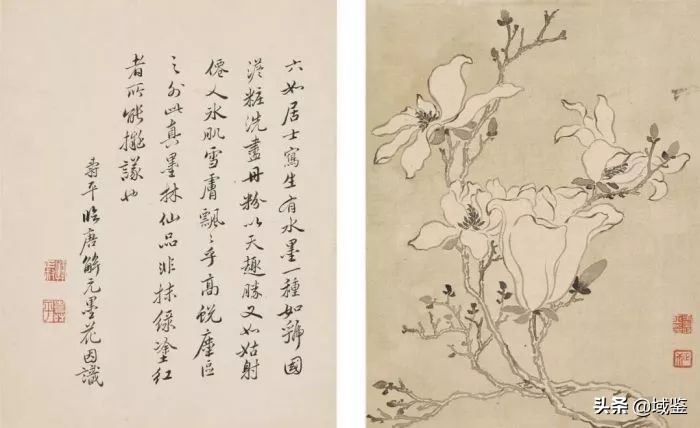 六如居士寫生有水墨一種如虢國
澹粧洗盡丹粉以天趣勝又如姑射
僊人冰肌雪膚飄〻乎高蛻塵區
之外此真墨林仙品非抹綠塗紅
者所能擬議也
壽平臨唐解元墨花因識
头条 @域鉴